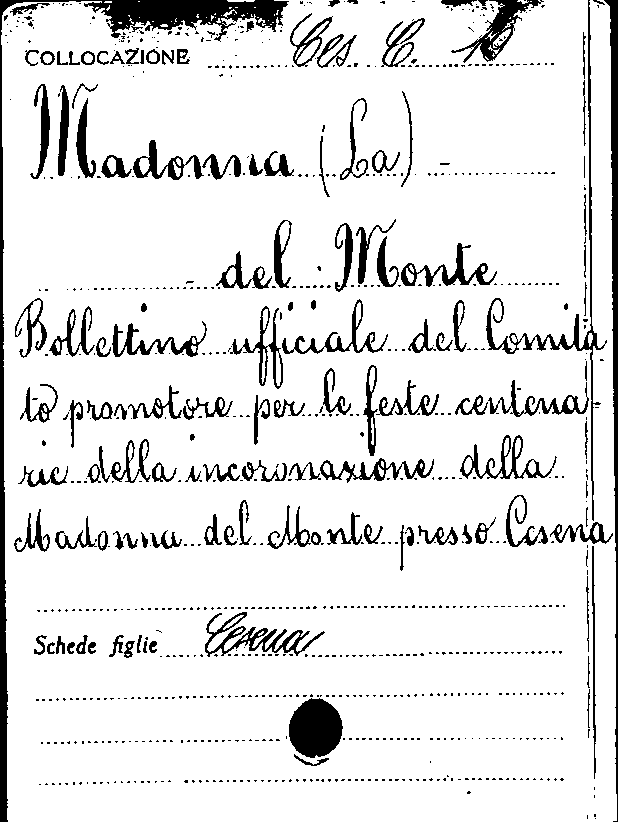 COLLOCAZIONE Ces. C. 10
Madonna (La) -
- del Monte
Bollettino ufficiale del Comita
to promotore per le feste centena-
rie della incoronazione della
Madonna del Monte presso Cesena
Schede figlie Cesena